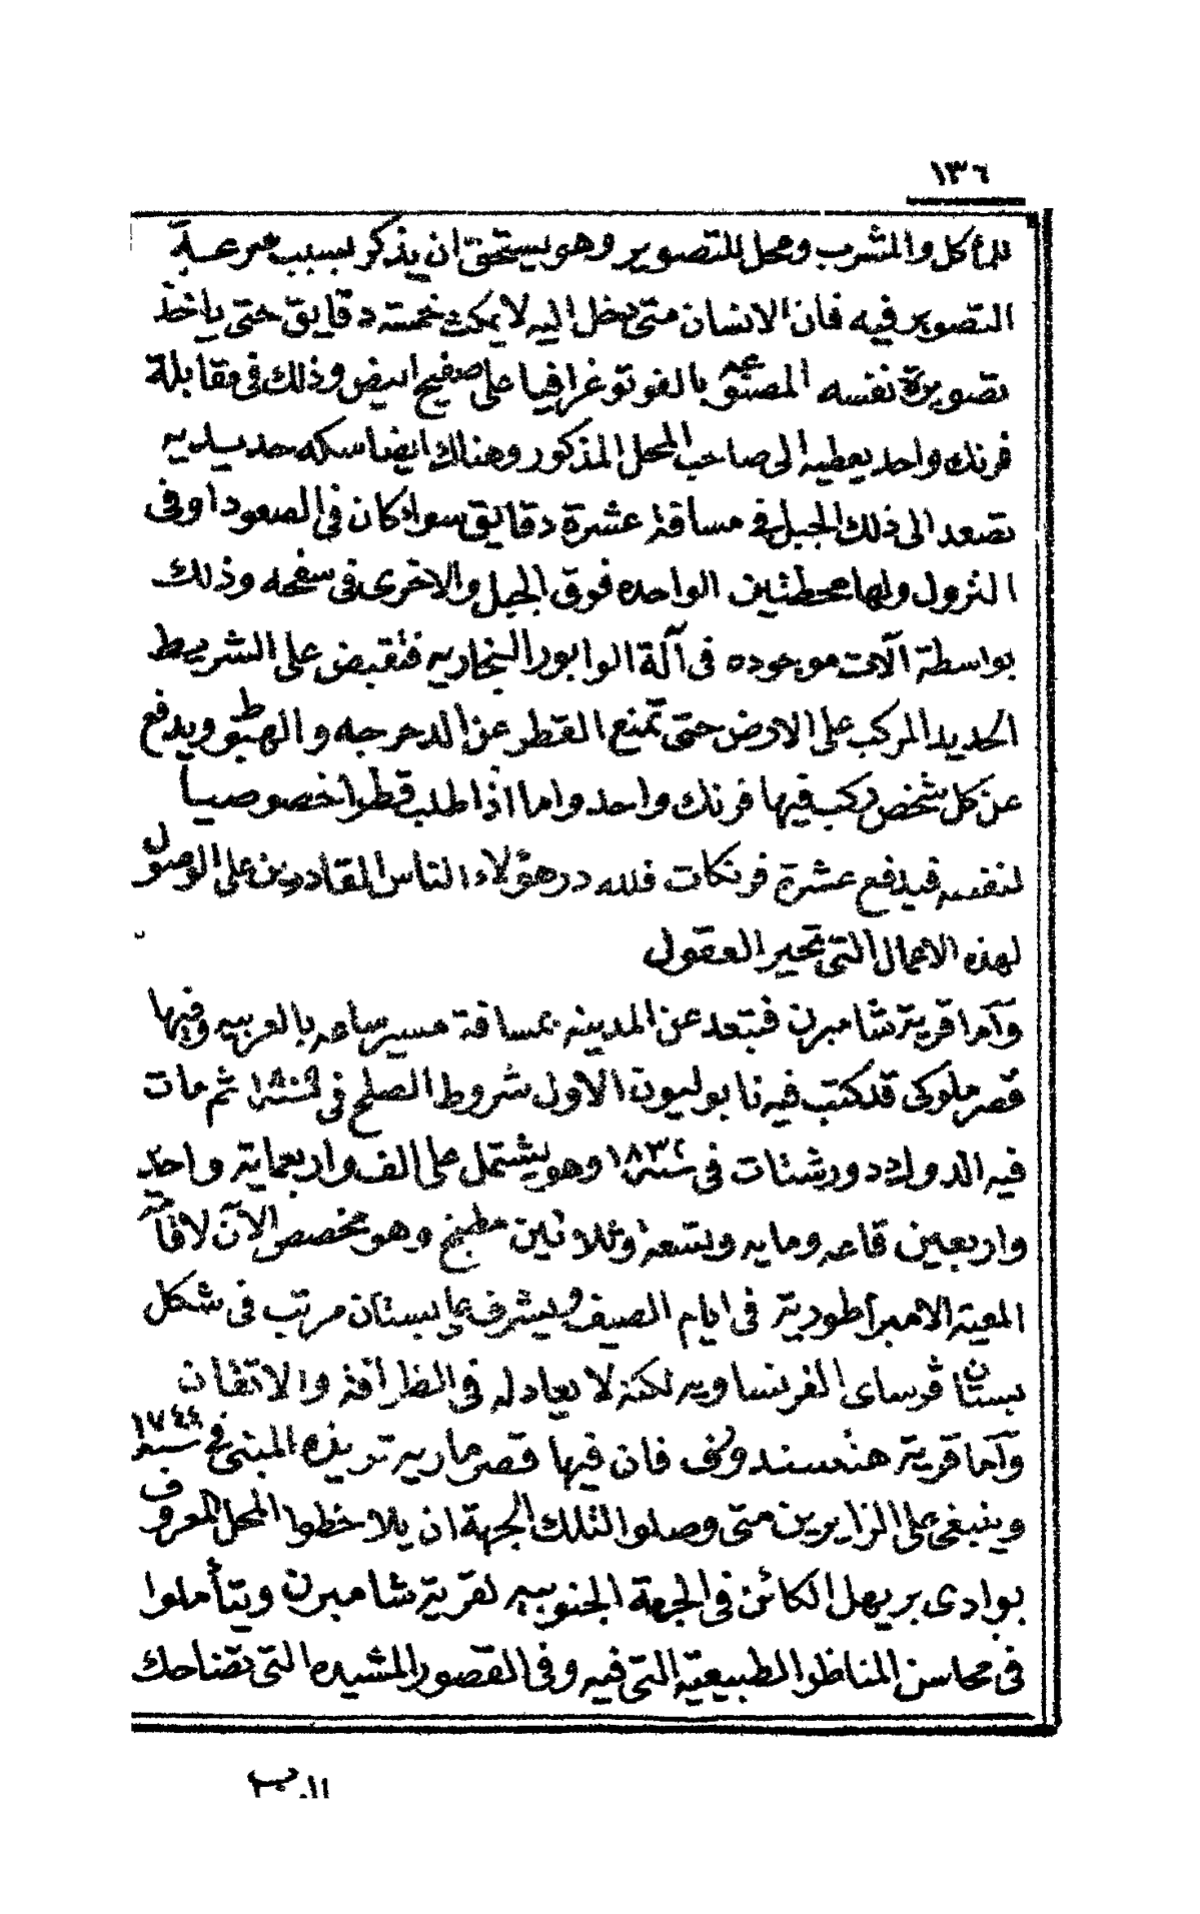 ١٣٦
للمأكل والمشرب ومحل للتصوير وهو يستحق ان يذكر لسبب سرعة
التصوير فيه فان الانسان متى دخل اليه لا يمكث خمسة دقايق حتى ياخذ
تصويرة نفسه المصنوعه بالفوتوغرافيا على صفيح ابيض وذلك فى مقابلة
فرنك واحد يعطيه الى صاحب المحل المذكور وهناك ايضا سكه حديديه
تصعد الى ذلك الجبل فى مسافة عشرة دقايق سواء كان فى الصعود او فى
النزول ولها محطتين الواحده فوق الجبل والاخرى فى سفحه وذلك
بواسطة آلات موجوده فى آلة الوابور البخاريه فتقبض على الشريط
الحديد المركب على الارض حتى تمنع القطر عن الدحرجه والهبوط ويدفع
عن كل شخص ركب فيها فرنك واحد واما اذا طلب قطرا خصوصيا
لنفسه فيدفع عشرة فرنكات فلله در هؤلاء الناس القادرين على الوصول
لهذه الاعمال التى تحير العقول
وآما قرية شامبرن فتبعد عن المدينه بمسافة مسير ساعه بالعربيه وفيها
قصر ملوكى قد كتب فيه نابوليون الاول شروط الصلح فى سنة ١٨٠٩ ثم مات
فيه الدوك دورشتات فى سنة ١٨٣٢ وهو يشتمل على الف واربعماية واحد
واربعين قاعه ومايه وتسعة وثلاثين مطبخ وهو مخصص الآن لاقامة
المعية الامبراطورية فى ايام الصيف ويشرف على بستان مرتب فى شكل
بستان ڤرساى الفرنساويه لكنه لا يعادله فى الظرافة والاتقان
وآما قرية هتسندورف فان فيها قصر ماريه تريذه المبنى فى سنة ١٧٤٤
وينبغى على الزايرين متى وصلوا لتلك الجهة ان يلاحظوا المحل المعروف
بوادى بريهل الكائن فى الجهة الجنوبيه لقرية شامبرن ويتأملوا
فى محاسن المناظر الطبيعية التى فيه وفى القصور المشيده التى تضاحك